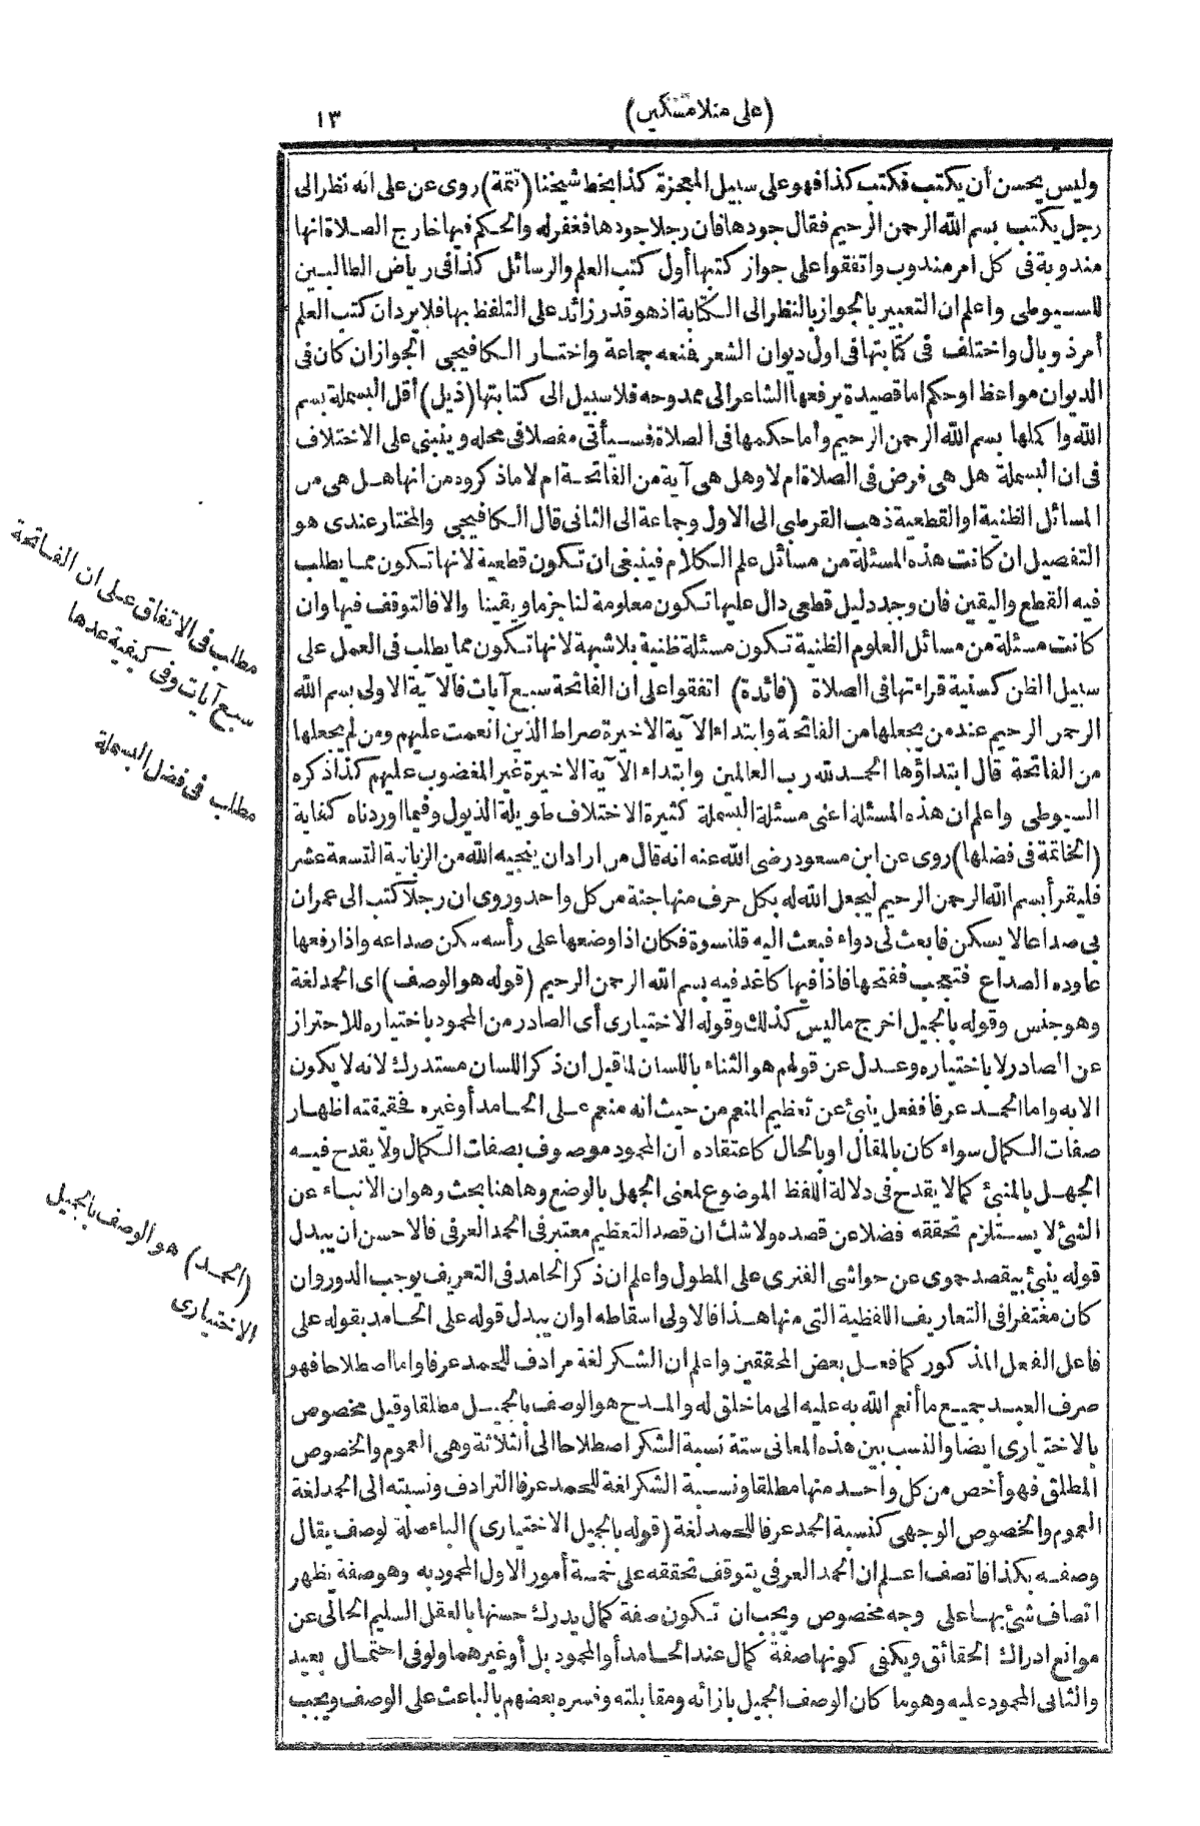 (على منلا مسكين)
١٣
وليس يحسن أن يكتب فكتب كذا فهو على سبيل المعجزة كذا بخط شيخنا (تتمة) روى عن على انه نظر الى
رجل يكتب بسم الله الرحمن الرحيم فقال جودها فان رجلا جودها فغفر له والحكم فيها خارج الصلاة انها
مندوبة فى كل امر مندوب واتفقوا على جواز كتبها أول كتب العلم والرسائل كذا فى رياض الطالبين
للسيوطى واعلم ان التعبير بالجواز بالنظر الى الكتابة اذ هو قدر زائد على التلفظ بها فلا يرد ان كتب العلم
أمر ذو بال واختلف فى كتابتها فى اول ديوان الشعر فمنعه جماعة واختار الكافيجى الجواز ان كان فى
الديوان مواعظ او حكم اما قصيدة يرفعها الشاعر الى ممدوحه فلا سبيل الى كتابتها (ذيل) أقل البسملة بسم
الله واكملها بسم الله الرحمن الرحيم وأما حكمها فى الصلاة فسيأتى مفصلا فى محله وينبنى على الاختلاف
فى ان البسملة هل هى فرض فى الصلاة ام لا وهل هى آية من الفاتحة ام لا ما ذكروه من انها هل هى من
المسائل الظنية او القطعية ذهب القرطبى الى الاول وجماعة الى الثانى قال الكافيجى والمختار عندى هو
التفصيل ان كانت هذه المسئلة من مسائل علم الكلام فينبغى ان تكون قطعية لانها تكون مما يطلب
فيه القطع واليقين فان وجد دليل قطعى دال عليها تكون معلومة لنا جزما ويقينا والا فالتوقف فيها وان
كانت مسئلة من مسائل العلوم الظنية تكون مسئلة ظنية بلا شبهة لانها تكون مما يطلب فى العمل على
سبيل الظن كسنية قراءتها فى الصلاة (فائدة) اتفقوا على ان الفاتحة سبع آيات فالآية الاولى بسم الله
الرحمن الرحيم عند من يجعلها من الفاتحة وابتداء الآية الاخيرة صراط الذين انعمت عليهم ومن لم يجعلها
من الفاتحة قال ابتداؤها الحمد لله رب العالمين وابتداء الآية الاخيرة غير المغضوب عليهم كذا ذكره
السيوطى واعلم ان هذه المسئلة اعنى مسئلة البسملة كثيرة الاختلاف طويلة الذيول وفيما اوردناه كفاية
(الخاتمة فى فضلها) روى عن ابن مسعود رضى الله عنه انه قال من اراد ان ينجيه الله من الزبانية التسعة عشر
فليقرأ بسم الله الرحمن الرحيم ليجعل الله له بكل حرف منها جنة من كل واحد وروى ان رجلا كتب الى عمر ان
بى صداعا لا يسكن فابعث لى دواء فبعث اليه قلنسوة فكان اذا وضعها على رأسه سكن صداعه واذا رفعها
عاوده الصداع فتعجب ففتحها فاذا فيها كاغد فيه بسم الله الرحمن الرحيم (قوله هو الوصف) اى الحمد لغة
وهو جنس وقوله بالجميل اخرج ما ليس كذلك وقوله الاختيارى أى الصادر من المحمود باختياره للاحتراز
عن الصادر لا باختياره وعدل عن قولهم هو الثناء باللسان لما قيل ان ذكر اللسان مستدرك لانه لا يكون
الا به واما الحمد عرفا ففعل ينبئ عن تعظيم المنعم من حيث انه منعم على الحامد أو غيره فحقيقته اظهار
صفات الكمال سواء كان بالمقال او بالحال كاعتقاده ان المحمود موصوف بصفات الكمال ولا يقدح فيه
الجهل بالمنبئ كما لا يقدح فى دلالة اللفظ الموضوع لمعنى الجهل بالوضع وهاهنا بحث وهو ان الانباء عن
الشئ لا يستلزم تحققه فضلا عن قصده ولا شك ان قصد التعظيم معتبر فى الحمد العرفى فالاحسن ان يبدل
قوله ينبئ بيقصد حموى عن حواشى الفنرى على المطول واعلم ان ذكر الحامد فى التعريف يوجب الدور وان
كان مغتفرا فى التعاريف اللفظية التى منها هذا فالاولى اسقاطه او ان يبدل قوله على الحامد بقوله على
فاعل الفعل المذكور كما فعل بعض المحققين واعلم ان الشكر لغة مرادف للحمد عرفا واما اصطلاحا فهو
صرف العبد جميع ما أنعم الله به عليه الى ما خلق له والمدح هو الوصف بالجميل مطلقا وقيل مخصوص
بالاختيارى ايضا والنسب بين هذه المعانى ستة نسبة الشكر اصطلاحا الى الثلاثة وهى العموم والخصوص
المطلق فهو أخص من كل واحد منها مطلقا ونسبة الشكر لغة للحمد عرفا الترادف ونسبته الى الحمد لغة
العموم والخصوص الوجهى كنسبة الحمد عرفا للحمد لغة (قوله بالجميل الاختيارى) الباء صلة لوصف يقال
وصفه بكذا فاتصف اعلم ان الحمد العرفى يتوقف تحققه على خمسة أمور الاول المحمود به وهو صفة يظهر
اتصاف شئ بها على وجه مخصوص ويجب ان تكون صفة كمال يدرك حسنها بالعقل السليم الخالى عن
موانع ادراك الحقائق ويكفى كونها صفة كمال عند الحامد أو المحمود بل أو غيرهما ولو فى احتمال بعيد
والثانى المحمود عليه وهو ما كان الوصف الجميل بازائه ومقابلته وفسره بعضهم بالباعث على الوصف ويجب
مطلب فى الاتفاق على ان الفاتحة
سبع آيات وفى كيفية عدها
مطلب فى فضل البسملة
(الحمد) هو الوصف بالجميل
الاختيارى